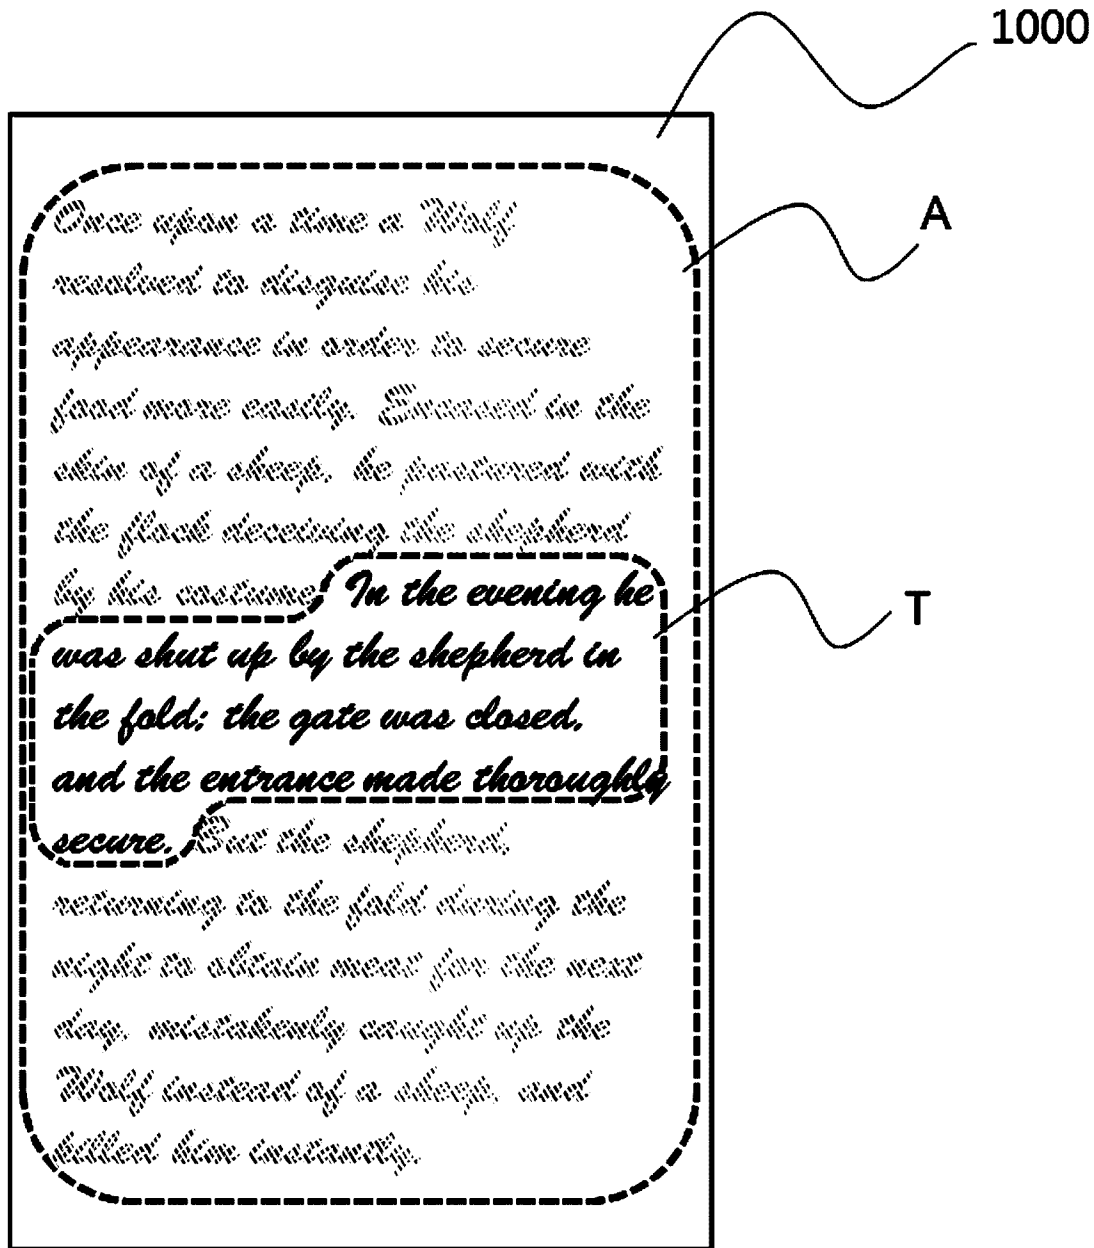 1000
A
Once upon a time a Wolf
resolved to disguise his
appearance in order to secure
food more easily. Encased in the
skin of a sheep, he pastured with
the flock deceiving the shepherd
by his costume. In the evening he
was shut up by the shepherd in
the fold; the gate was closed,
T
and the entrance made thoroughly
secure. But the shepherd,
returning to the fold during the
night to obtain meat for the next
day, mistakenly caught up the
Wolf instead of a sheep, and
killed him instantly.